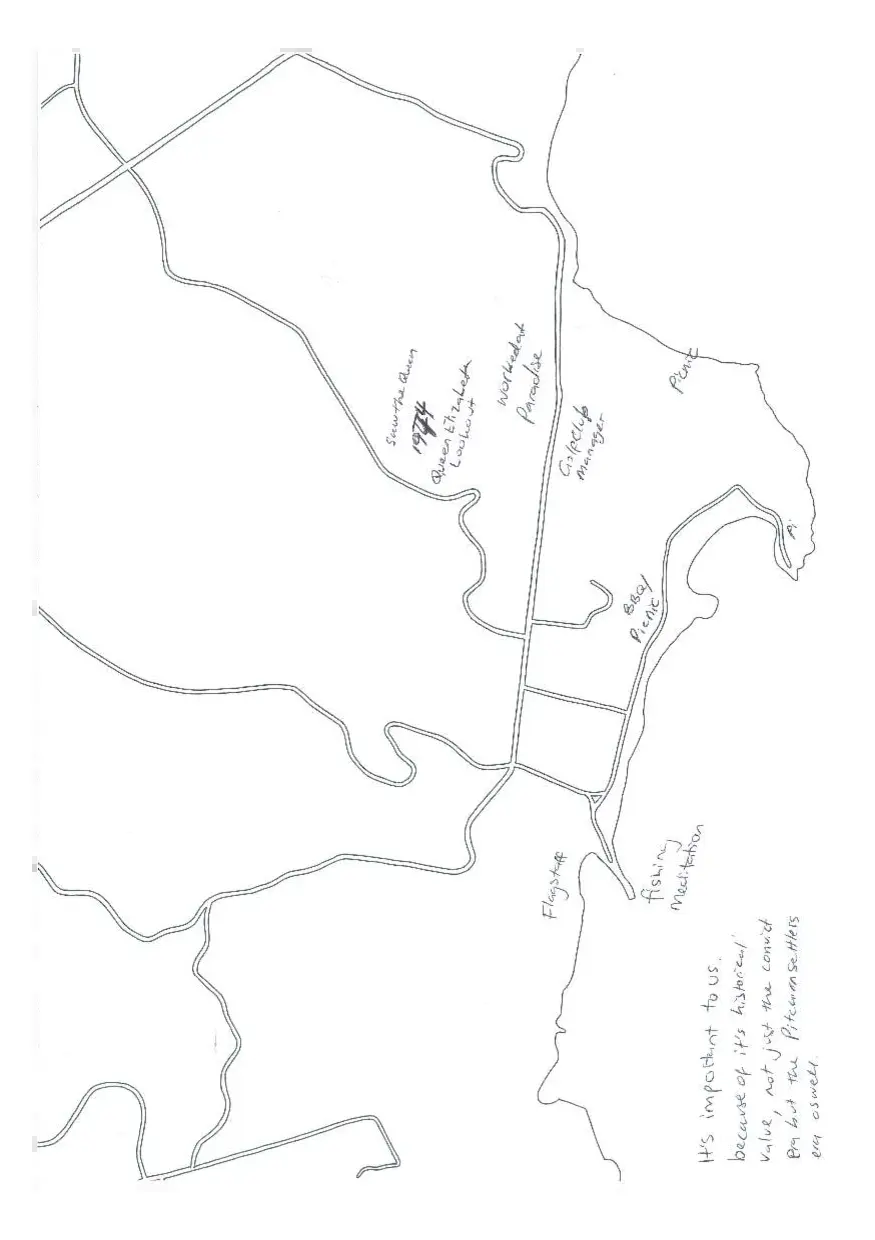 Saw the Queen
Queen Elizabeth
Lookout
Worked at
Paradise
Golf Club
Manager
Picnic
Pi
BBQ/
Picnic
Flagstaff
fishing
Meditation
It's important to us.
because of it's historical
value, not just the convict
era but the Pitcairn settlers
era aswell.